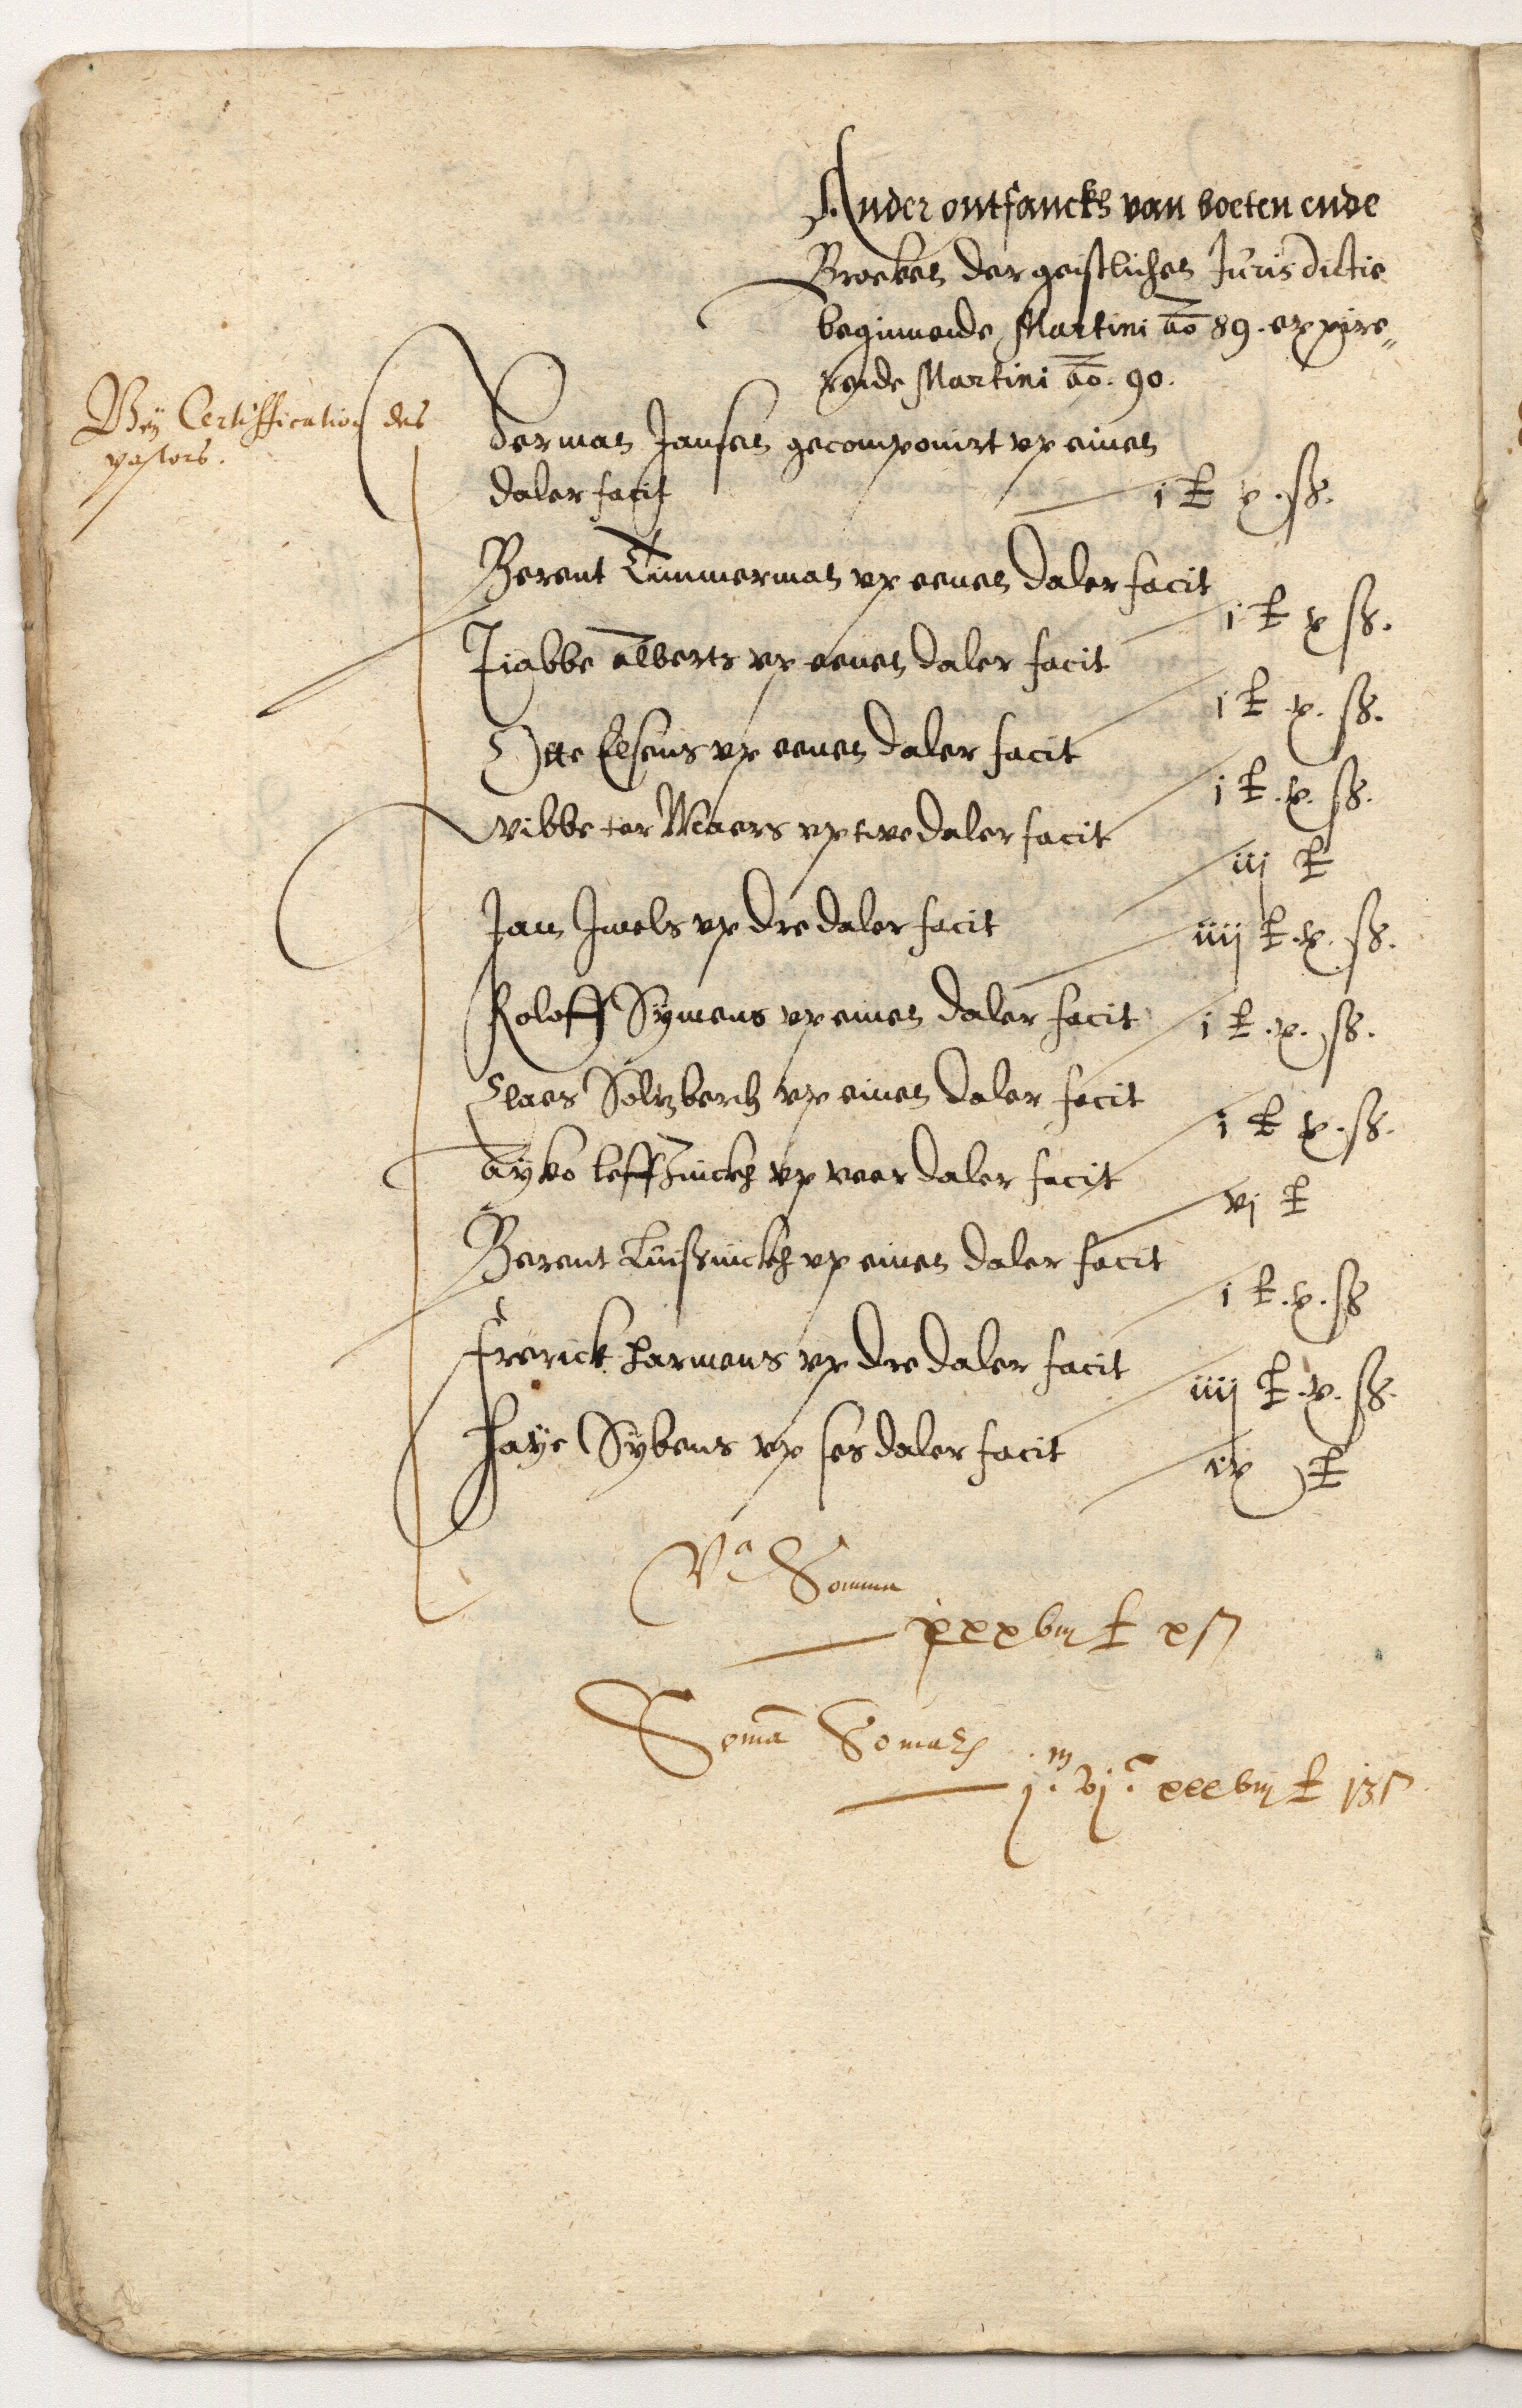 Ander ontfanckh van boeten ende
Broeken der geistlichen Jurisdictie
beginnende Martini ao 89. expire„
rende Martini ao. 90.
Bey Certiffication des
pastors.
Herman Jansen gecomponirt vp einen
daler facit j ₤ x. ß.
Berent Timmerman vp eenen daler facit
j ₤ x ß.
Tiabbe Alberts vp eenen daler facit
j ₤ x. ß.
Otte Elsens vp eenen daler facit
j ₤. x. ß.
Wibbe ter Maers vp twe daler facit
iij ₤
Jan Jwels vp dre daler facit iiij ₤. x. ß.
Roloff Symens vp einen daler facit j ₤. x. ß.
Claes Soltzberch vp einen daler facit
j ₤ x. ß.
Ayko leffzinckh vp veer daler facit
vj ₤
Berent Luissinckh vp einen daler facit
j ₤. x. ß
Frerick Harmens vp dre daler facit
iiij ₤. x. ß.
Haye Sybens vp ses daler facit
ix ₤
Va Somma
xxxviij ₤ x ß
Soma Somarum
j.m vj.c xxxviij ₤ j3 ß